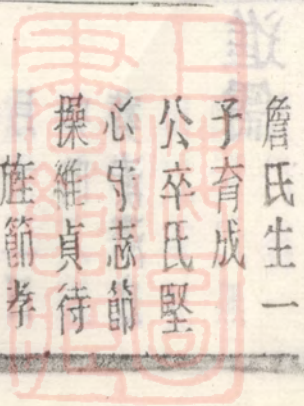 詹氏生一
子育成
公卒氏堅
心守志節
操維貞待
旌節孝